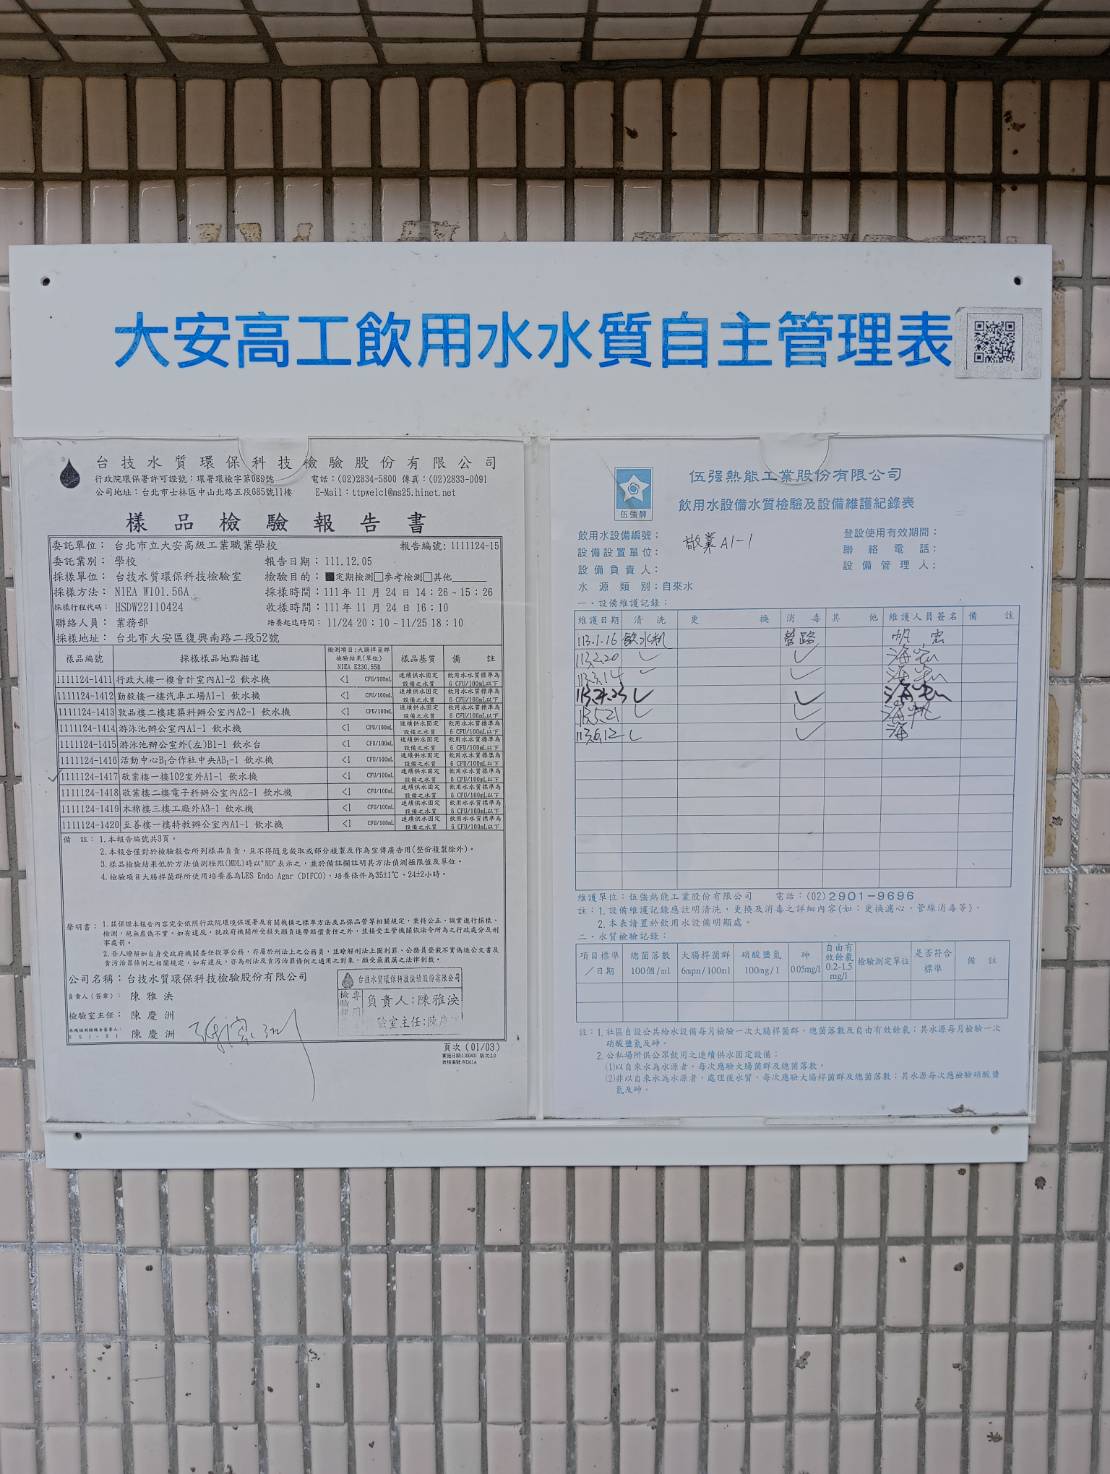 大安高工飲用水水質自主管理表
台技水質環保科技檢驗股份有限公司
行政院環保署許可證號：環署環檢字第089號 電話：(02)2834-5800 傳真：(02)2833-0091
公司地址：台北市士林區中山北路五段685號11樓 E-Mail：ttpwelcl@ms25.hinet.net
樣品檢驗報告書
委託單位： 台北市立大安高級工業職業學校 報告編號：1111124-15
委託業別： 學校 報告日期：111.12.05
採樣單位： 台技水質環保科技檢驗室 檢驗目的：■定期檢測□參考檢測□其他
採樣方法： NIEA W101.56A 採樣時間：111 年 11 月 24 日 14：26 ~ 15：26
採樣行程代碼： HSDW22110424 收樣時間：111 年 11 月 24 日 16：10
聯絡人員： 業務部 培養起迄時間： 11/24 20：10 ~ 11/25 18：10
採樣地址： 台北市大安區復興南路二段52號
樣品編號 採樣樣品地點描述 檢測項目:大腸桿菌群 檢驗結果(單位) NIEA E230.55B 樣品基質 備 註
1111124-1411 行政大樓一樓會計室內A1-2 飲水機 <1 CFU/100mL 連續供水固定設備之水質 飲用水水質標準為 6 CFU/100mL以下
1111124-1412 勤毅樓一樓汽車工場A1-1 飲水機 <1 CFU/100mL 連續供水固定設備之水質 飲用水水質標準為 6 CFU/100mL以下
1111124-1413 敦品樓二樓建築科辦公室內A2-1 飲水機 <1 CFU/100mL 連續供水固定設備之水質 飲用水水質標準為 6 CFU/100mL以下
1111124-1414 游泳池辦公室內A1-1 飲水機 <1 CFU/100mL 連續供水固定設備之水質 飲用水水質標準為 6 CFU/100mL以下
1111124-1415 游泳池辦公室外(左)B1-1 飲水台 <1 CFU/100mL 連續供水固定設備之水質 飲用水水質標準為 6 CFU/100mL以下
1111124-1416 活動中心B1合作社中央AB1-1 飲水機 <1 CFU/100mL 連續供水固定設備之水質 飲用水水質標準為 6 CFU/100mL以下
1111124-1417 敬業樓一樓102室外A1-1 飲水機 <1 CFU/100mL 連續供水固定設備之水質 飲用水水質標準為 6 CFU/100mL以下
1111124-1418 敬業樓二樓電子科辦公室內A2-1 飲水機 <1 CFU/100mL 連續供水固定設備之水質 飲用水水質標準為 6 CFU/100mL以下
1111124-1419 木棉樓三樓工廠外A3-1 飲水機 <1 CFU/100mL 連續供水固定設備之水質 飲用水水質標準為 6 CFU/100mL以下
1111124-1420 至善樓一樓特教辦公室內A1-1 飲水機 <1 CFU/100mL 連續供水固定設備之水質 飲用水水質標準為 6 CFU/100mL以下
備 註：1.本報告編號共3頁。
2.本報告僅對於檢驗報告所列樣品負責，且不得隨意截取或部分複製及作為宣傳廣告用(整份複製除外)。
3.樣品檢驗結果低於方法偵測極限(MDL)時以"ND"表示之，並於備註欄註明其方法偵測極限值及單位。
4.檢驗項目大腸桿菌群所使用培養基為LES Endo Agar (DIFCO)，培養條件為35±1℃、24±2小時。
聲明書： 1.茲保證本報告內容完全依照行政院環境保護署及有關機構之標準方法及品保品管等相關規定，秉持公正、誠實進行採樣、
檢測，絕無虛偽不實，如有違反，
公司名稱：台技水質環保科技檢驗股份有限公司
負責人(簽章)： 陳雅泱
檢驗室主任： 陳慶洲
陳慶洲
台技水質環保科技檢驗股份有限公司
負責人：陳雅泱
驗室主任：陳慶洲
頁次 (01/03)
伍強牌
伍强熱能工業股份有限公司
飲用水設備水質檢驗及設備維護紀錄表
飲用水設備編號： 敬業A1-1 登設使用有效期間：
設備設置單位： 聯絡電話：
設備負責人： 設備管理人：
水源類別：自來水
一、設備維護記錄：
維護日期 清洗 更換 消毒 其他 維護人員簽名 備註
113.1.16 飲水机 管路
113.2.20 ✓ ✓
113.3.14 ✓ ✓
113.4.23 ✓ ✓
113.5.21 ✓ ✓
113.6.12 ✓ ✓
維護單位：伍強熱能工業股份有限公司 電話：(02)2901-9696
註：1.設備維護記錄應註明清洗、更換及消毒之詳細內容(如：更換濾心、管線消毒等)。
2.本表請置於飲用水設備明顯處。
二、水質檢驗記錄：
項目標準／日期 總菌落數 100個/ml 大腸桿菌群 6mpn/100ml 硝酸鹽氮 100mg/l 砷 0.05mg/l 自由有效餘氯 0.2-1.5 mg/l 檢驗測定單位 是否符合標準 備註
註：1.社區自設公共給水設備每月檢驗一次大腸桿菌群、總菌落數及自由有效餘氯；其水源每月檢驗一次
硝酸鹽氮及砷。
2.公私場所供公眾飲用之連續供水固定設備：
(1)以自來水為水源者，每次應驗大腸菌群及總菌落數。
(2)非以自來水為水源者，處理後水質，每次應驗大腸桿菌群及總菌落數；其水源每次應檢驗硝酸鹽
氮及砷。